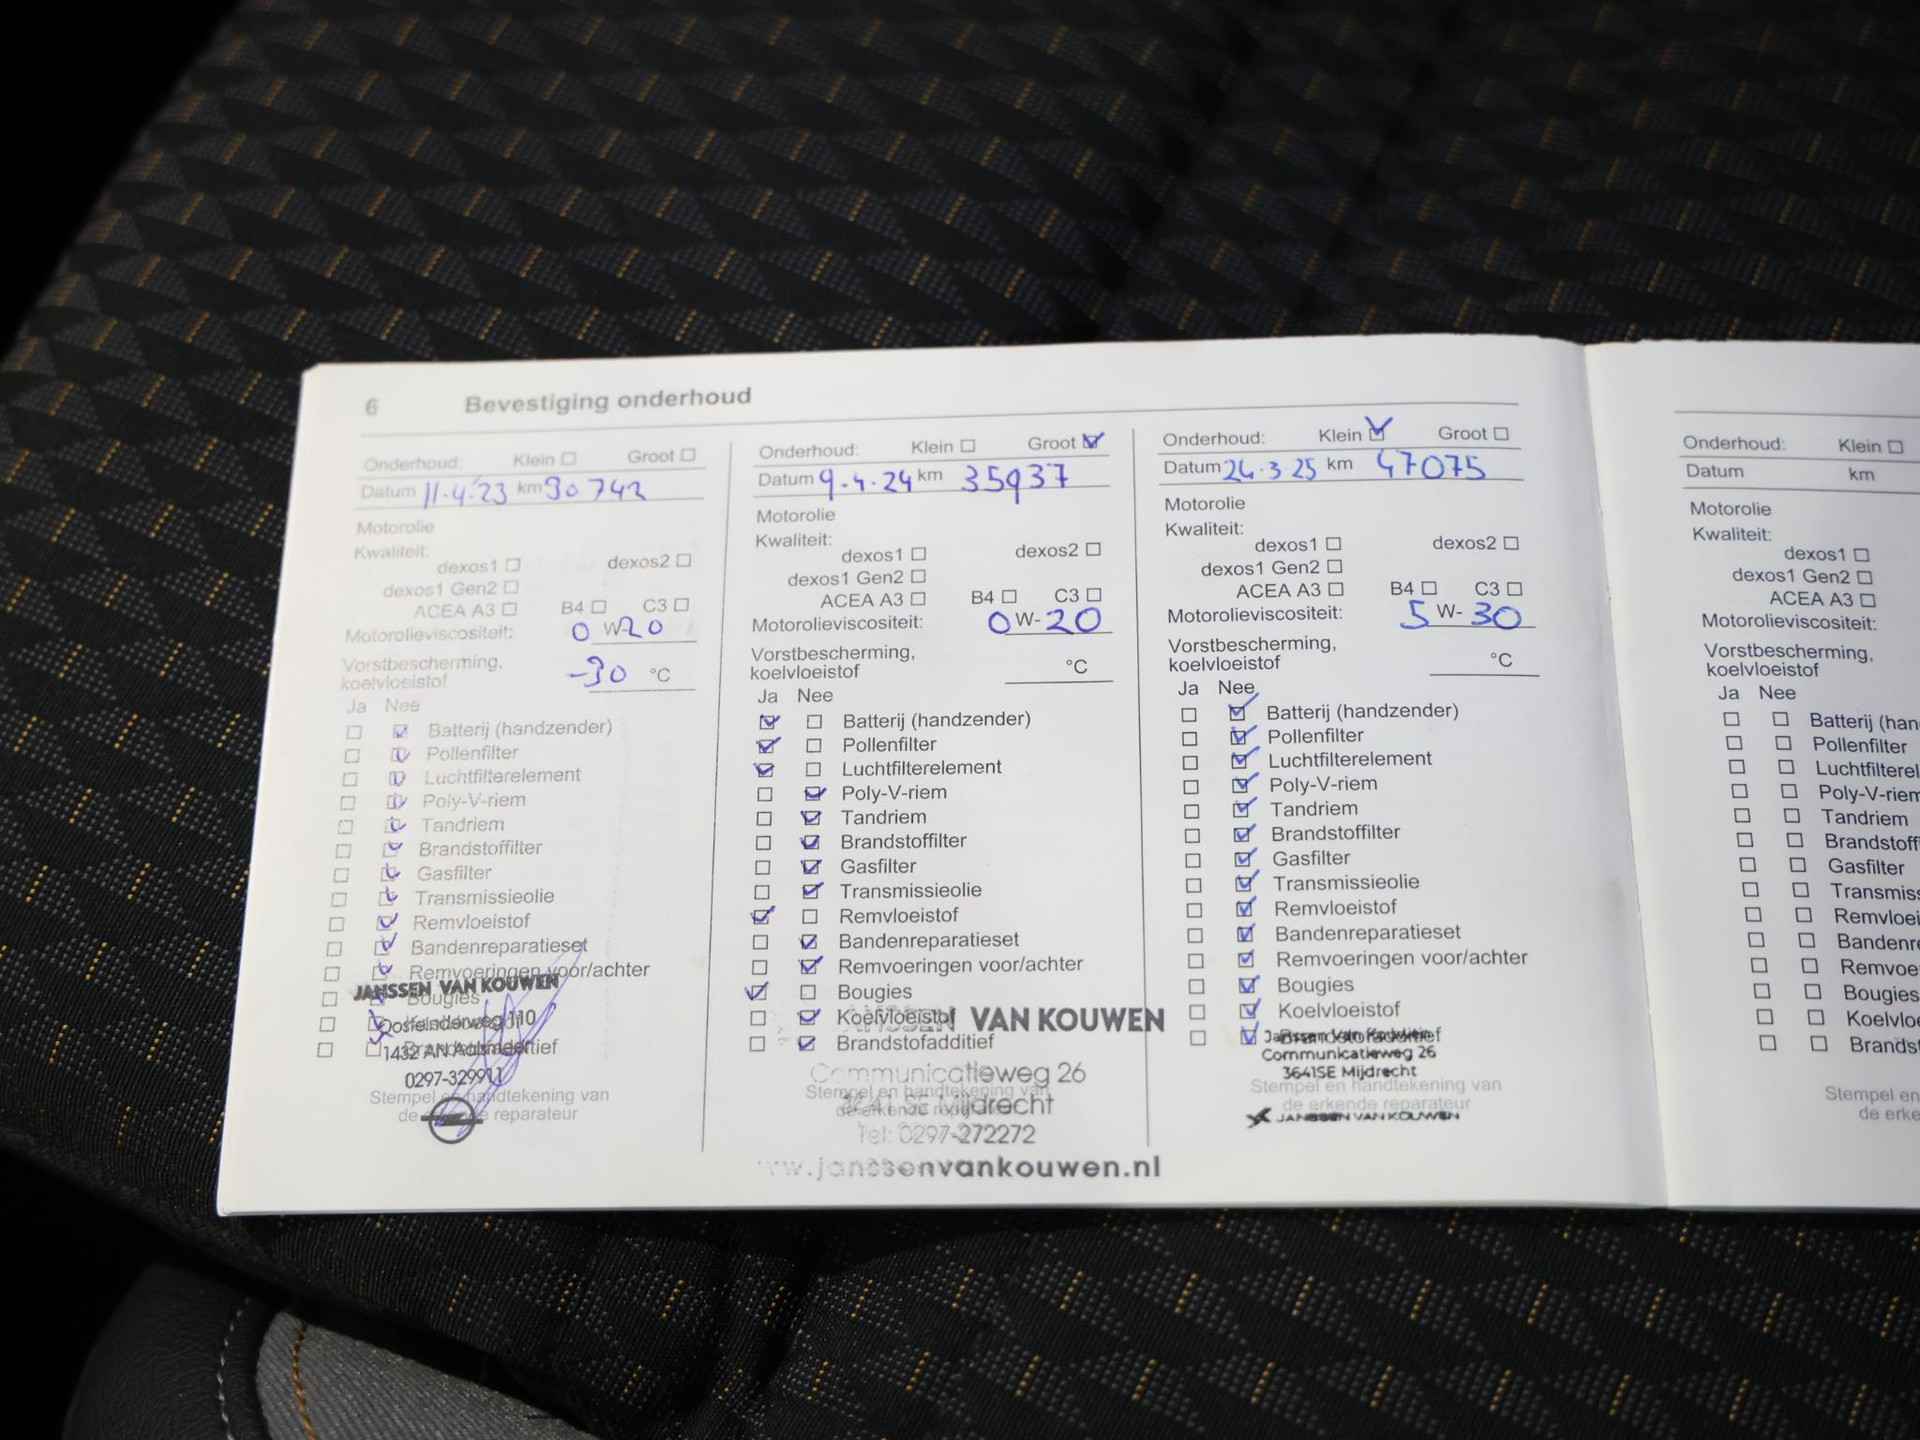 6 Bevestiging onderhoud
Onderhoud: Klein Groot
Datum 11.4.23 km 30 742
Motorolie
Kwaliteit:
dexos1 dexos2
dexos1 Gen2
ACEA A3 B4 C3
Motorolieviscositeit: 0 W-20
Vorstbescherming,
koelvloeistof -30 °C
Ja Nee
Batterij (handzender)
Pollenfilter
Luchtfilterelement
Poly-V-riem
Tandriem
Brandstoffilter
Gasfilter
Transmissieolie
Remvloeistof
Bandenreparatieset
Remvoeringen voor/achter
JANSSEN VAN KOUWEN
Bougies
Oosteinderweg 110
1432 AN Aalsmeer
0297-329911
Stempel en handtekening van
de reparateur
Onderhoud: Klein Groot
Datum 9-4-24 km 35937
Motorolie
Kwaliteit:
dexos1 dexos2
dexos1 Gen2
ACEA A3 B4 C3
Motorolieviscositeit: 0 W- 20
Vorstbescherming,
koelvloeistof °C
Ja Nee
Batterij (handzender)
Pollenfilter
Luchtfilterelement
Poly-V-riem
Tandriem
Brandstoffilter
Gasfilter
Transmissieolie
Remvloeistof
Bandenreparatieset
Remvoeringen voor/achter
Bougies
Koelvloeistof
JANSSEN VAN KOUWEN
Brandstofadditief
Communicatieweg 26
Stempel en handtekening van
3641 SE Mijdrecht
de erkende reparateur
Tel: 0297-272272
www.janssenvankouwen.nl
Onderhoud: Klein Groot
Datum 24.3.25 km 47075
Motorolie
Kwaliteit:
dexos1 dexos2
dexos1 Gen2
ACEA A3 B4 C3
Motorolieviscositeit: 5 W- 30
Vorstbescherming,
koelvloeistof °C
Ja Nee
Batterij (handzender)
Pollenfilter
Luchtfilterelement
Poly-V-riem
Tandriem
Brandstoffilter
Gasfilter
Transmissieolie
Remvloeistof
Bandenreparatieset
Remvoeringen voor/achter
Bougies
Koelvloeistof
Brandstofadditief
Janssen Van Kouwen
Communicatieweg 26
3641SE Mijdrecht
Stempel en handtekening van
de erkende reparateur
JANSSEN VAN KOUWEN
Onderhoud: Klein
Datum km
Motorolie
Kwaliteit:
dexos1
dexos1 Gen2
ACEA A3
Motorolieviscositeit:
Vorstbescherming,
koelvloeistof
Ja Nee
Batterij (han
Pollenfilter
Luchtfilterel
Poly-V-riem
Tandriem
Brandstoff
Gasfilter
Transmiss
Remvloei
Bandenre
Remvoe
Bougies
Koelvloe
Brandst
Stempel en
de erke